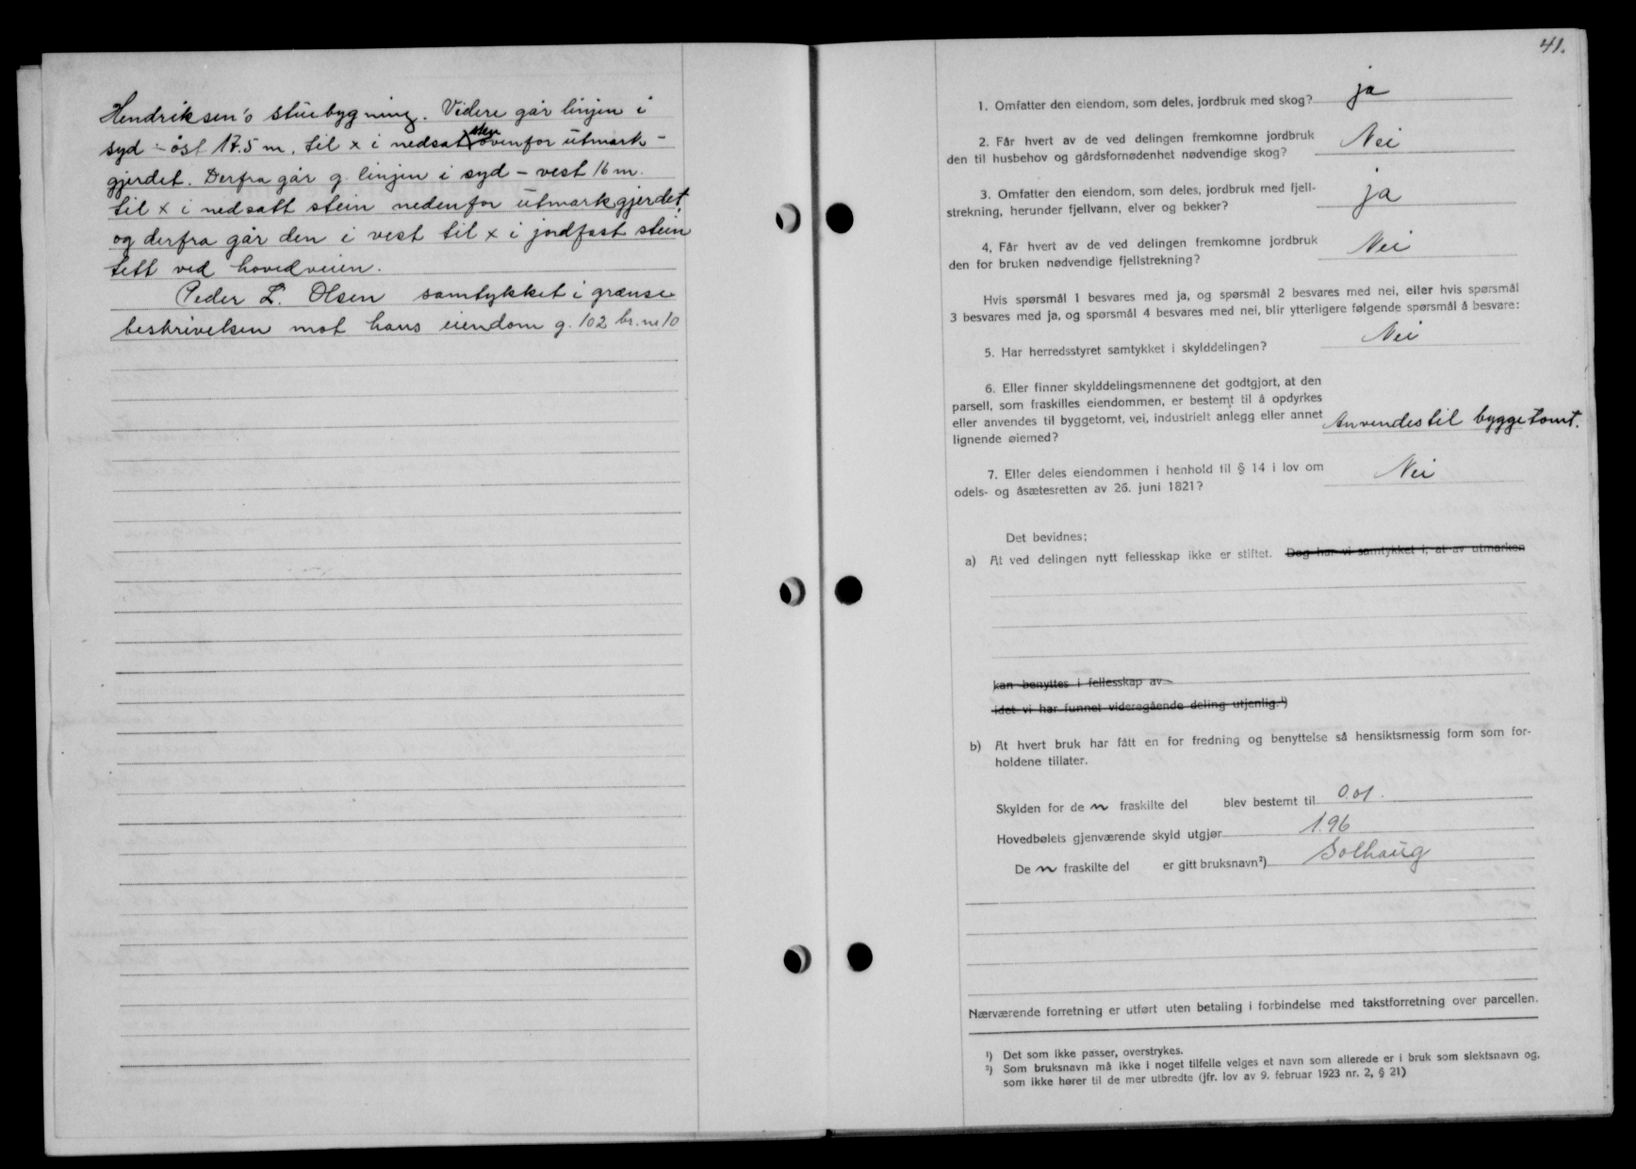 Hendriksen's stuebygning. Videre går linjen i
syd - öst 17.5 m. til x i nedsat sten ovenfor utmark-
gjerdet. Derfra går g. linjen i syd - vest 16 m.
til x i nedsatt stein nedenfor utmarkgjerdet,
og derfra går den i vest til x i jordfast stein
tett ved hovedveien.
Peder L. Olsen samtykket i grænse
beskrivelsen mot hans eiendom g. 102 br. nr 10
41.
1. Omfatter den eiendom, som deles, jordbruk med skog? ja
2. Får hvert av de ved delingen fremkomne jordbruk
den til husbehov og gårdsfornødenhet nødvendige skog? Nei
3. Omfatter den eiendom, som deles, jordbruk med fjell-
strekning, herunder fjellvann, elver og bekker? ja
4. Får hvert av de ved delingen fremkomne jordbruk
den for bruken nødvendige fjellstrekning? Nei
Hvis spørsmål 1 besvares med ja, og spørsmål 2 besvares med nei, eller hvis spørsmål
3 besvares med ja, og spørsmål 4 besvares med nei, blir ytterligere følgende spørsmål å besvare:
5. Har herredsstyret samtykket i skylddelingen? Nei
6. Eller finner skylddelingsmennene det godtgjort, at den
parsell, som fraskilles eiendommen, er bestemt til å opdyrkes
eller anvendes til byggetomt, vei, industrielt anlegg eller annet
lignende øiemed? Anvendes til byggetomt.
7. Eller deles eiendommen i henhold til § 14 i lov om
odels- og åsætesretten av 26. juni 1821? Nei
Det bevidnes:
a) At ved delingen nytt fellesskap ikke er stiftet. Dog har vi samtykket i, at av utmarken
kan benyttes i fellesskap av
idet vi har funnet videregående deling utjenlig.¹)
b) At hvert bruk har fått en for fredning og benyttelse så hensiktsmessig form som for-
holdene tillater.
Skylden for de n fraskilte del blev bestemt til 0.01.
Hovedbølets gjenværende skyld utgjør 1.96
De n fraskilte del er gitt bruksnavn²) Solhaug
Nærværende forretning er utført uten betaling i forbindelse med takstforretning over parcellen.
¹) Det som ikke passer, overstrykes.
²) Som bruksnavn må ikke i noget tilfelle velges et navn som allerede er i bruk som slektsnavn og,
som ikke hører til de mer utbredte (jfr. lov av 9. februar 1923 nr. 2, § 21)